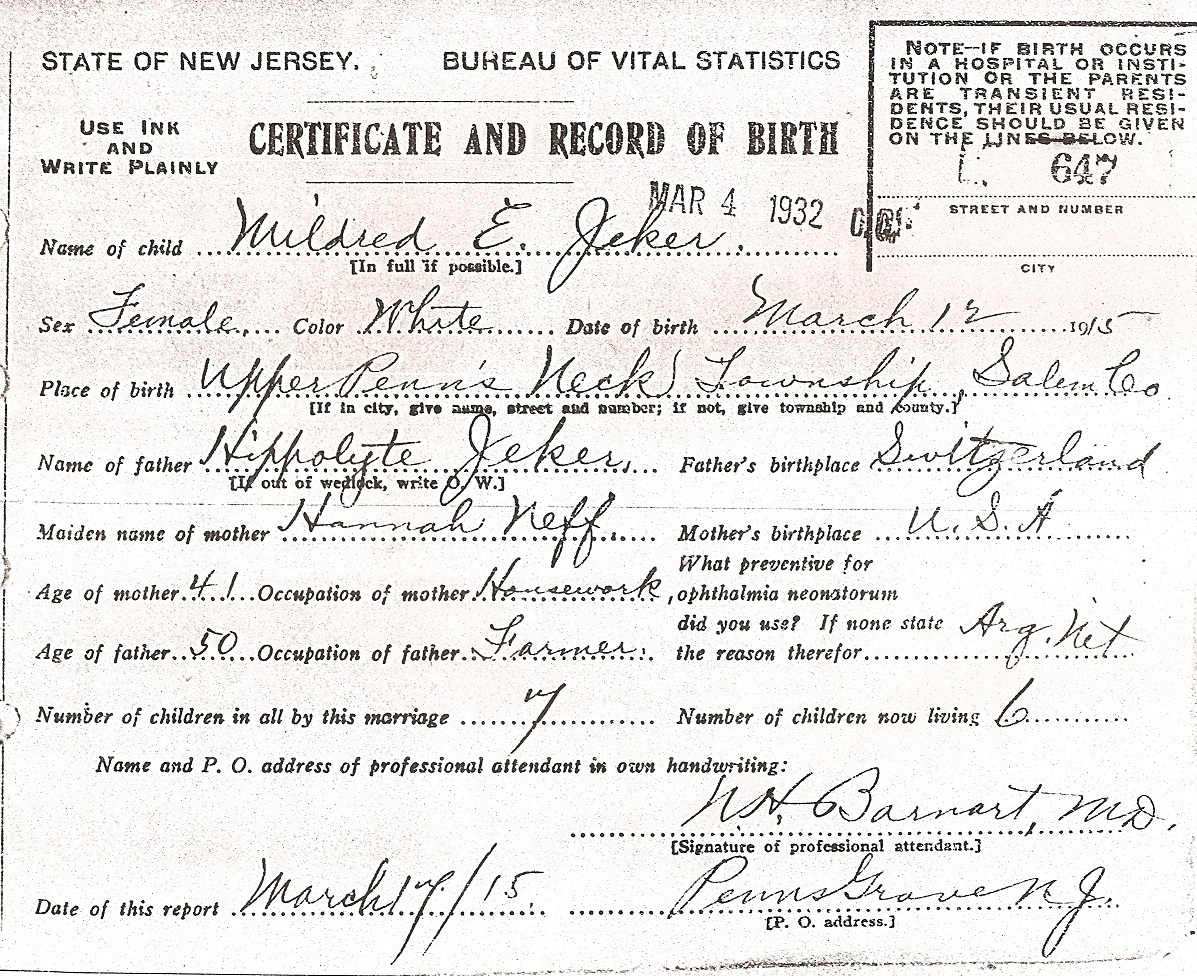 STATE OF NEW JERSEY. BUREAU OF VITAL STATISTICS
NOTE--IF BIRTH OCCURS
IN A HOSPITAL OR INSTI-
TUTION OR THE PARENTS
ARE TRANSIENT RESI-
DENTS, THEIR USUAL RESI-
DENCE SHOULD BE GIVEN
ON THE LINES BELOW.
L. 647
STREET AND NUMBER
CITY
USE INK
AND
WRITE PLAINLY
CERTIFICATE AND RECORD OF BIRTH
MAR 4 1932
Name of child Mildred E. Jeker.
[In full if possible.]
Sex Female Color White Date of birth March 12 1915
Place of birth Upper Penn's Neck Township, Salem Co
[If in city, give name, street and number; if not, give township and county.]
Name of father Hippolyte Jeker, Father's birthplace Switzerland
[If out of wedlock, write O. W.]
Maiden name of mother Hannah Neff Mother's birthplace U. S. A
Age of mother 41 Occupation of mother Housework,
What preventive for
ophthalmia neonatorum
did you use? If none state
the reason therefor Arg. Nit
Age of father 50 Occupation of father Farmer.
Number of children in all by this marriage 7 Number of children now living 6
Name and P. O. address of professional attendant in own handwriting:
Barnart, MD.
[Signature of professional attendant.]
Date of this report March 17/15. Penns Grove N J.
[P. O. address.]